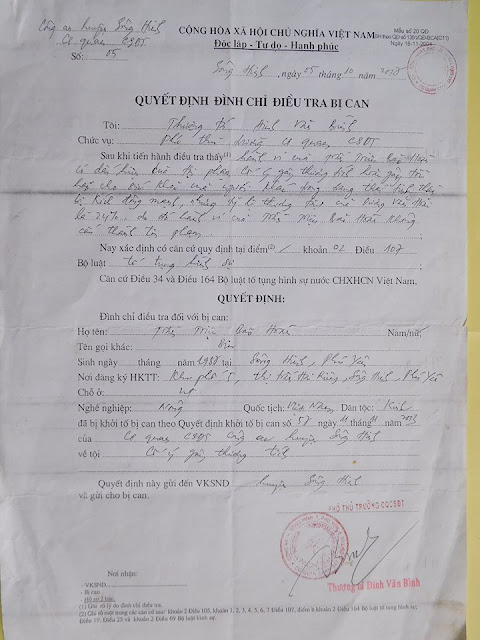 Công an huyện Sông Hinh
Cơ quan CSĐT
Số: 05
CỘNG HÒA XÃ HỘI CHỦ NGHĨA VIỆT NAM
Độc lập - Tự do - Hạnh phúc
Mẫu số 20 QĐ
Ngày 18-11-2004
Sông Hinh, ngày 05 tháng 10 năm
QUYẾT ĐỊNH ĐÌNH CHỈ ĐIỀU TRA BỊ CAN
Tôi: Thượng tá Đinh Văn Bình
Chức vụ: Phó thủ trưởng Cơ quan CSĐT
Sau khi tiến hành điều tra thấy(1) hành vi của
có dấu hiệu của tội phạm Cố ý gây thương tích hoặc gây tổn
hại cho sức khỏe của người khác trong trạng thái tinh thần
bị kích động mạnh,
là 24%. do đó hành vi của không
cấu thành tội phạm
Nay xác định có căn cứ quy định tại điểm(2) / khoản 02 Điều 107
Bộ luật tố tụng hình sự
Căn cứ Điều 34 và Điều 164 Bộ luật tố tụng hình sự nước CHXHCN Việt Nam,
QUYẾT ĐỊNH:
Đình chỉ điều tra đối với bị can:
Họ tên: Nam/nữ
Tên gọi khác:
Sinh ngày tháng năm tại Sông Hinh, Phú Yên
Nơi đăng ký HKTT: Khu phố 5, thị trấn Hai Riêng, Sông Hinh, Phú Yên
Chỗ ở:
Nghề nghiệp: Nông Quốc tịch: Việt Nam Dân tộc: Kinh
đã bị khởi tố bị can theo Quyết định khởi tố bị can số 57 ngày 11 tháng năm
của Cơ quan CSĐT Công an huyện Sông Hinh
về tội Cố ý gây thương tích
Quyết định này gửi đến VKSND huyện Sông Hinh
và gửi cho bị can.
PHÓ THỦ TRƯỞNG CQCSĐT
Thượng tá Đinh Văn Bình
Nơi nhận:
- VKSND
- Bị can
- Hồ sơ 2 bản.
(1) Ghi rõ lý do đình chỉ điều tra.
(2) Ghi rõ một trong các căn cứ sau: khoản 2 Điều 105, khoản 1, 2, 3, 4, 5, 6, 7 Điều 107, điểm b khoản 2 Điều 164 Bộ luật tố tụng hình sự,
Điều 19, Điều 25 và khoản 2 Điều 69 Bộ luật hình sự.